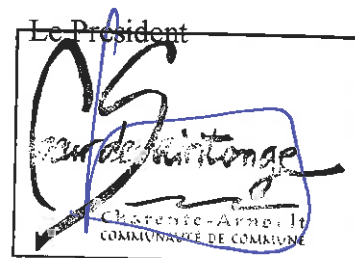 Le Président
CS
Cœur de Saintonge
Charente-Arnoult
COMMUNAUTÉ DE COMMUNE